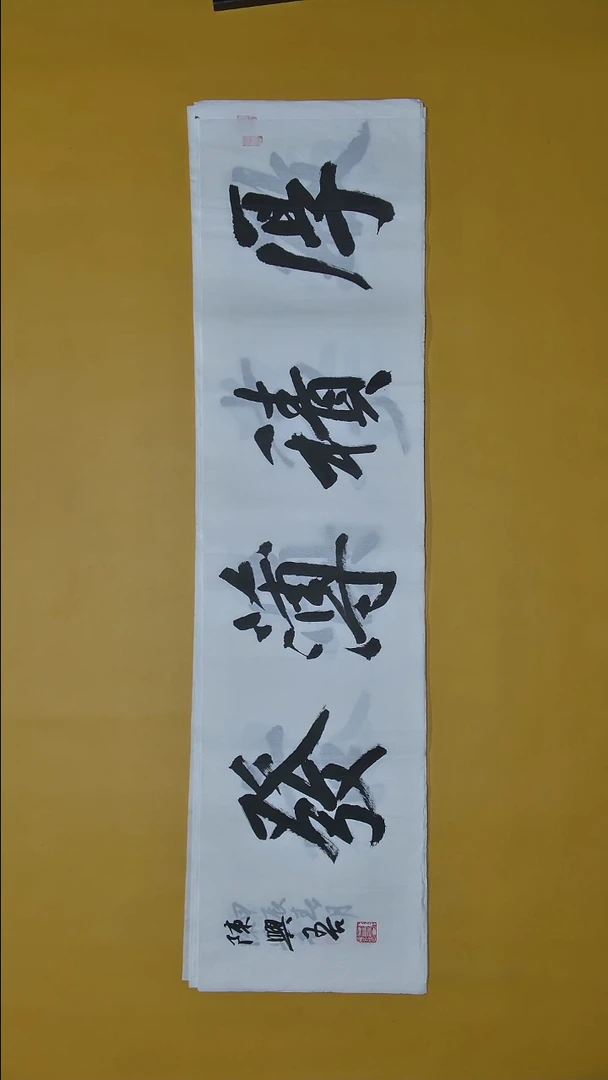 厚積薄發
陳興